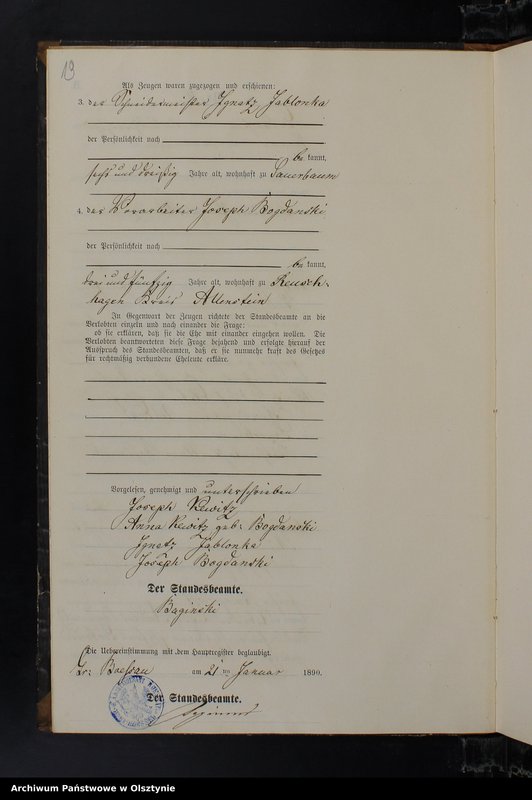 19
Als Zeugen waren zugezogen und erschienen:
3. der Schneidermeister Ignatz Jablonka
der Persönlichkeit nach
be kannt,
sechs und dreißig Jahre alt, wohnhaft zu Lauerbaum
4. der Vorarbeiter Joseph Bogdanski
der Persönlichkeit nach
be kannt,
drei und fünfzig Jahre alt, wohnhaft zu Reusch-
hagen Kreis Allenstein
In Gegenwart der Zeugen richtete der Standesbeamte an die
Verlobten einzeln und nach einander die Frage:
ob sie erklären, daß sie die Ehe mit einander eingehen wollen. Die
Verlobten beantworteten diese Frage bejahend und erfolgte hierauf der
Ausspruch des Standesbeamten, daß er sie nunmehr kraft des Gesetzes
für rechtmäßig verbundene Eheleute erkläre.
Vorgelesen, genehmigt und unterschrieben
Joseph Kewitz
Anna Kewitz geb: Bogdanski
Ignatz Jablonka
Joseph Bogdanski
Der Standesbeamte.
Baginski
Die Uebereinstimmung mit dem Hauptregister beglaubigt.
Gr: Boessau am 21 ten Januar 1890.
Der Standesbeamte.
Archiwum Państwowe w Olsztynie